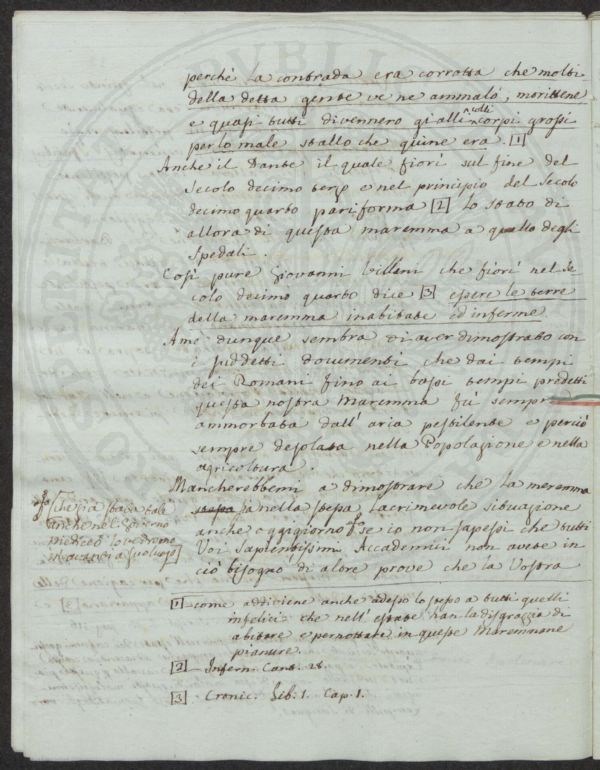 perchè la contrada era corrotta che molti
della detta gente ve ne ammalò, morittene
e quasi tutti divennero gialli ^colli corpi grossi
per lo male stallo che quine era. [1]
Anche il Dante il quale fiorì sul fine del
secolo decimo terzo e nel principio del secolo
decimo quarto pariforma [2] lo stato di
allora di questa maremma a quello degli
spedali.
Così pure Giovanni Villani che fiorì nel se
colo decimo quarto dice [3] essere le terre
della maremma inabitate ed inferme.
A me dunque sembra di aver dimostrato con
i suddetti documenti che dai tempi
dei Romani fino ai bassi tempi predetti
questa nostra Maremma fù sempre
ammorbata dall'aria pestilente e perciò
sempre desolata nella Popolazione e nella
agricoltura.
Mancherebbemi a dimostrare che la maremma
sia nella stessa lacrimevole situazione
anche oggigiorno se io non sapessi che tutti
Voi Sapientissimi Accademici non avete in
ciò bisogno di altre prove che la Vostra
[che già stava tale
anche nel Governo
Mediceo lo vedremo
a suo luogo]
[1] come addiviene anche adesso lo stesso a tutti quelli
infelici che nell'estate han la disgrazia di
abitare e pernottare in queste Maremmane
pianure.
[2] Infern. Cant. 29.
[3] Cronic. Lib. 1. Cap. 1.